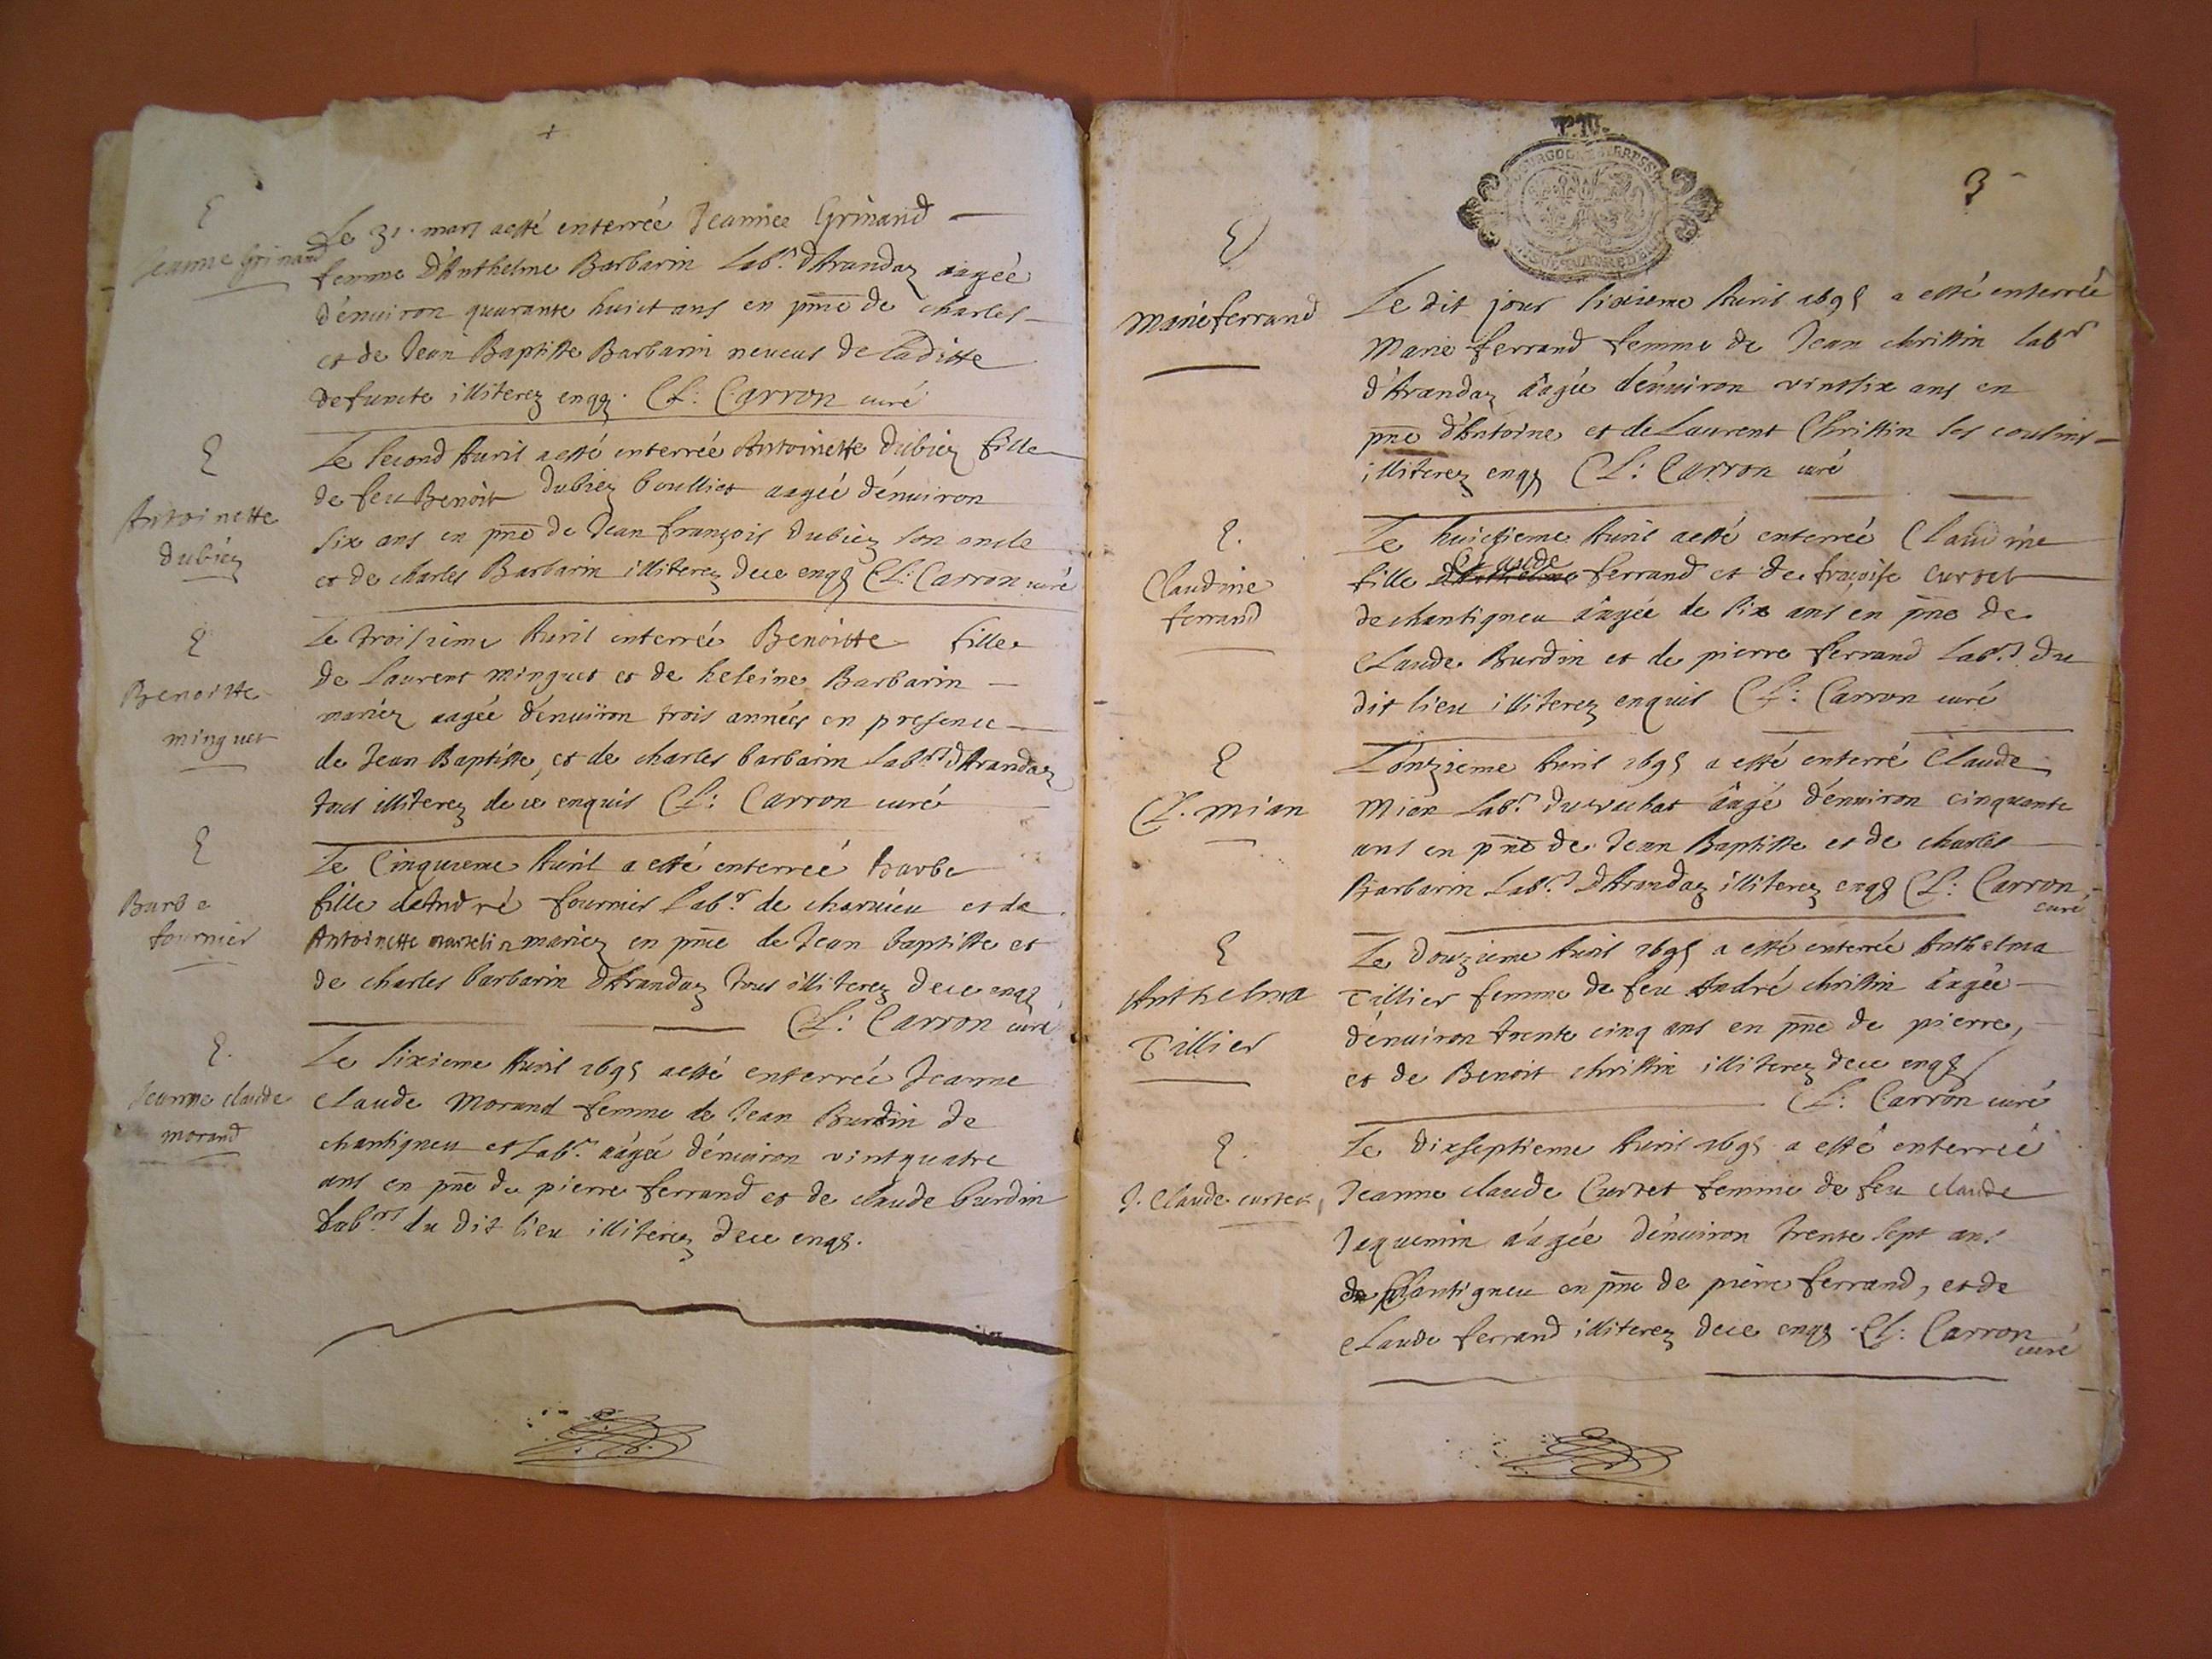 +
E
Jeanne Grinand
Le 31. mars a esté enterrée Jeannee Grinand
femme D'Anthelme Barbarin Lab.r d'Arandaz aagée
d'environ quarante huict ans en pñce de charles
et de Jean Baptiste Barbarin neveus de Laditte
defuncte illiterez enqs. Cl: Carron curé
E
Antoinette
dubiez
Le second Avril a esté enterrée Antoinette Dubiez fille
de feu Benoit Dubiez boullier aagée d'environ
six ans en pñce de Jean françois Dubiez son oncle
et de charles Barbarin illiterez dece enqs Cl: Carron curé
E
Benoitte
minguet
Le troisieme Avril enterrée Benoitte fille
de Laurent minguet et de heleine Barbarin
mariez aagée d'environ trois années en presence
de Jean Baptiste, et de charles barbarin Lab.rs d'Arandaz
tous illiterez de ce enquis Cl: Carron curé
E
Barbe
fournier
Le Cinquieme Avril a esté enterreé Barbe
fille de André fournier Lab.r de charvieu et de
Antoinette marselin mariez en pñce de Jean baptiste et
de charles barbarin d'Arandaz tous illiterez dece enqs
Cl: Carron curé
E.
Jeanne claude
morand
Le sixieme Avril 1695 a esté enterrée Jeanne
Claude Morand femme de Jean Burdin de
chantigneu et Lab.r aagée d'environ vintquatre
ans en pñce de pierre ferrand et de claude burdin
Lab.rs du dit lieu illiterez dece enqs.
3
E
Marie ferrand
Le dit jour sixieme Avril 1695 a esté enterrée
Marie ferrand femme de Jean christin lab.r
d'Arandaz aagée d'environ vintsix ans en
pñce d'Antoine et de Laurent Christin ses cousins
illiterez enqs Cl: Carron curé
E.
Claudine
ferrand
Le huictieme Avril a esté enterrée Claudine
Claude
fille d'Anthelme ferrand et de fraçoise curtet
de chantigneu aagée de six ans en pñce de
Claude Burdin et de pierre ferrand Lab.rs du
dit lieu illiterez enquis Cl: Carron curé
E
Cl. mian
L'onzieme Avril 1695 a esté enterré Claude
Mian Lab.r du vuchat aagé d'environ cinquante
ans en pñce de Jean Baptiste et de charles
Barbarin Lab.rs d'Arandaz illiterez enqs Cl: Carron
curé
E
Anthelma
Tillier
Le Douzieme Avril 1695 a esté enterrée Anthelma
Tillier femme de feu André christin aagée
d'environ trente cinq ans en pñce de pierre,
et de Benoit christin illiterez dece enqs
Cl: Carron curé
E.
J. Claude curtet
Le dixseptieme Avril 1695 a esté enterrée
Jeanne claude Curtet femme de feu claude
Jaquemin aagée d'environ trente sept ans
de Chantigneu en pñce de pierre ferrand, et de
Claude ferrand illiterez dece enqs Cl: Carron
curé